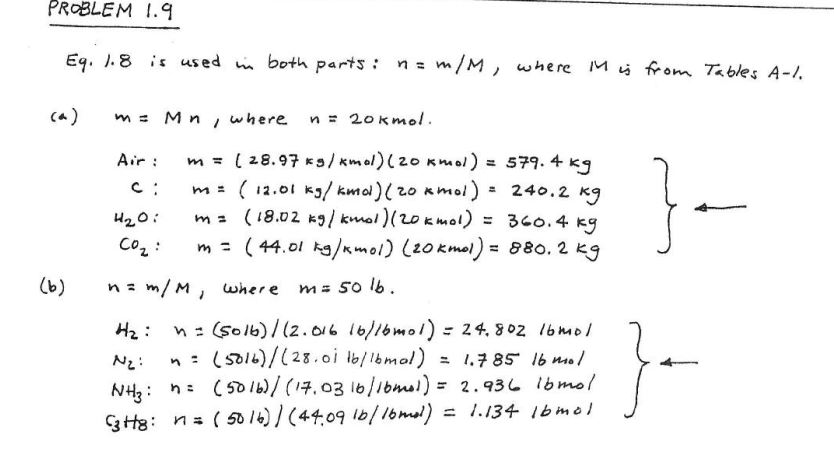 PROBLEM 1.9
Eq. 1.8 is used in both parts: n = m/M, where M is from Tables A-1.
(a) m = Mn, where n = 20 kmol.
Air: m = (28.97 kg/kmol)(20 kmol) = 579.4 kg
C: m = (12.01 kg/kmol)(20 kmol) = 240.2 kg
H₂O: m = (18.02 kg/kmol)(20 kmol) = 360.4 kg
CO₂: m = (44.01 kg/kmol)(20 kmol) = 880.2 kg
(b) n = m/M, where m = 50 lb.
H₂: n = (50 lb)/(2.016 lb/lbmol) = 24.802 lbmol
N₂: n = (50 lb)/(28.01 lb/lbmol) = 1.785 lbmol
NH₃: n = (50 lb)/(17.03 lb/lbmol) = 2.936 lbmol
C₃H₈: n = (50 lb)/(44.09 lb/lbmol) = 1.134 lbmol